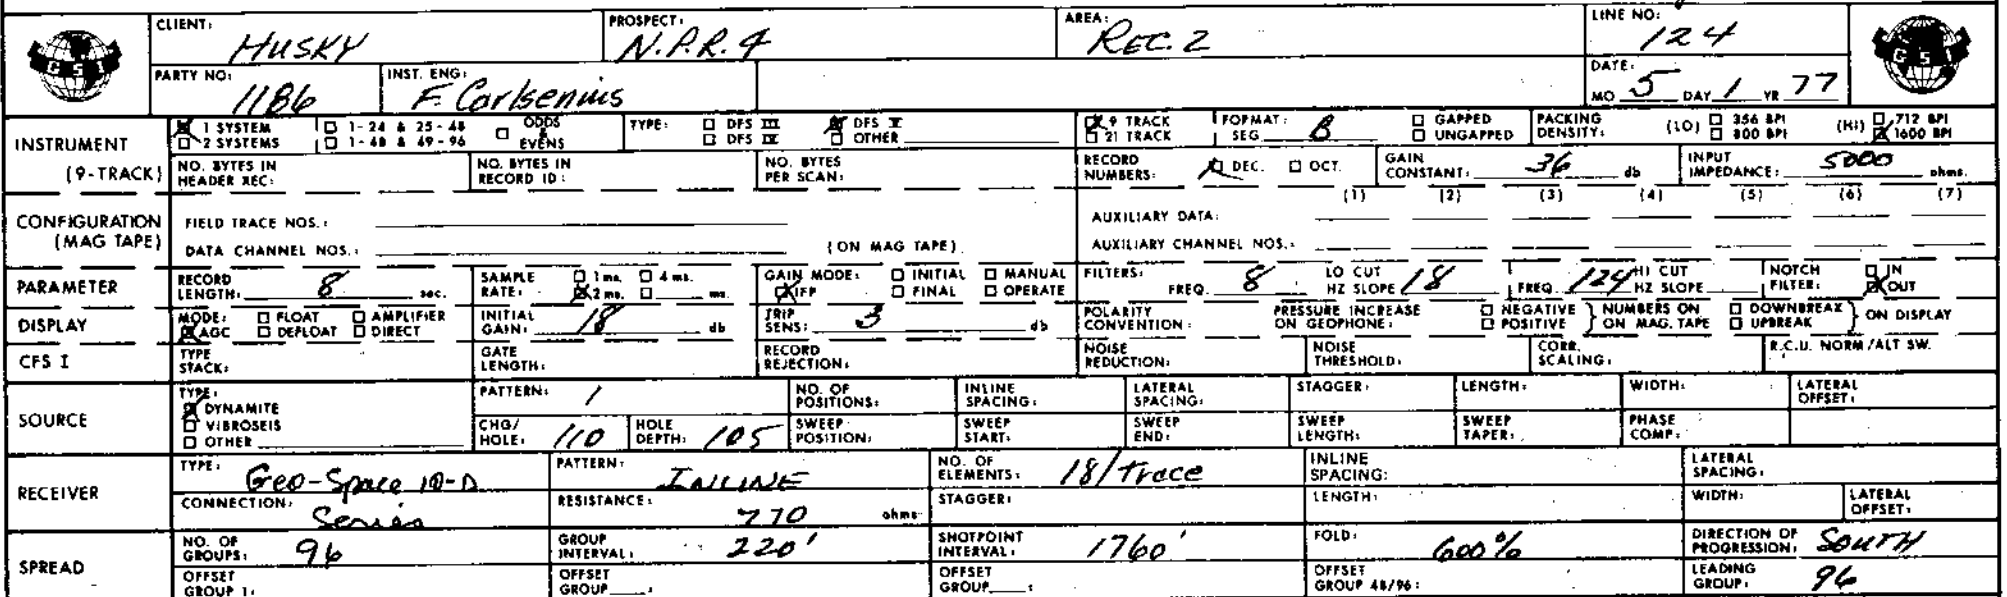 CLIENT: HUSKY PROSPECT: N.P.R. 4 AREA: REC. 2 LINE NO: 124
GSI GSI
PARTY NO: 1186 INST. ENG: F. Carlsenius DATE: MO 5 DAY 1 YR 77
INSTRUMENT 1 SYSTEM 1-24 & 25-48 ODDS & EVENS TYPE: DFS III DFS V 9 TRACK FORMAT: SEG B GAPPED PACKING DENSITY: (LO) 356 BPI (HI) 712 BPI
2 SYSTEMS 1-48 & 49-96 DFS IV OTHER 21 TRACK UNGAPPED 800 BPI 1600 BPI
(9-TRACK) NO. BYTES IN HEADER REC: NO. BYTES IN RECORD ID: NO. BYTES PER SCAN: RECORD NUMBERS: DEC. OCT. GAIN CONSTANT: 36 db INPUT IMPEDANCE: 5000 ohms.
(1) (2) (3) (4) (5) (6) (7)
CONFIGURATION FIELD TRACE NOS.: AUXILIARY DATA:
(MAG TAPE) DATA CHANNEL NOS.: (ON MAG TAPE) AUXILIARY CHANNEL NOS.:
PARAMETER RECORD LENGTH: 8 sec. SAMPLE RATE: 1 ms. 4 ms. 2 ms. ms. GAIN MODE: INITIAL MANUAL IFP FINAL OPERATE FILTERS: FREQ. 8 LO CUT HZ SLOPE 18 FREQ. 124 HI CUT HZ SLOPE NOTCH FILTER: IN OUT
DISPLAY MODE: FLOAT AMPLIFIER AGC DEFLOAT DIRECT INITIAL GAIN: 18 db TRIP SENS: 3 db POLARITY CONVENTION: PRESSURE INCREASE ON GEOPHONE: NEGATIVE POSITIVE NUMBERS ON ON MAG. TAPE DOWNBREAK UPBREAK ON DISPLAY
CFS I TYPE STACK: GATE LENGTH: RECORD REJECTION: NOISE REDUCTION: NOISE THRESHOLD: CORR. SCALING: R.C.U. NORM/ALT SW.
SOURCE TYPE: DYNAMITE VIBROSEIS OTHER PATTERN: 1 NO. OF POSITIONS: INLINE SPACING: LATERAL SPACING: STAGGER: LENGTH: WIDTH: LATERAL OFFSET:
CHG/HOLE: 110 HOLE DEPTH: 105 SWEEP POSITION: SWEEP START: SWEEP END: SWEEP LENGTH: SWEEP TAPER: PHASE COMP:
RECEIVER TYPE: Geo-Space 10-D PATTERN: INLINE NO. OF ELEMENTS: 18/Trace INLINE SPACING: LATERAL SPACING:
CONNECTION: Series RESISTANCE: 770 ohms STAGGER: LENGTH: WIDTH: LATERAL OFFSET:
SPREAD NO. OF GROUPS: 96 GROUP INTERVAL: 220' SHOTPOINT INTERVAL: 1760' FOLD: 600% DIRECTION OF PROGRESSION: SOUTH
OFFSET GROUP 1: OFFSET GROUP : OFFSET GROUP : OFFSET GROUP 48/96: LEADING GROUP: 96